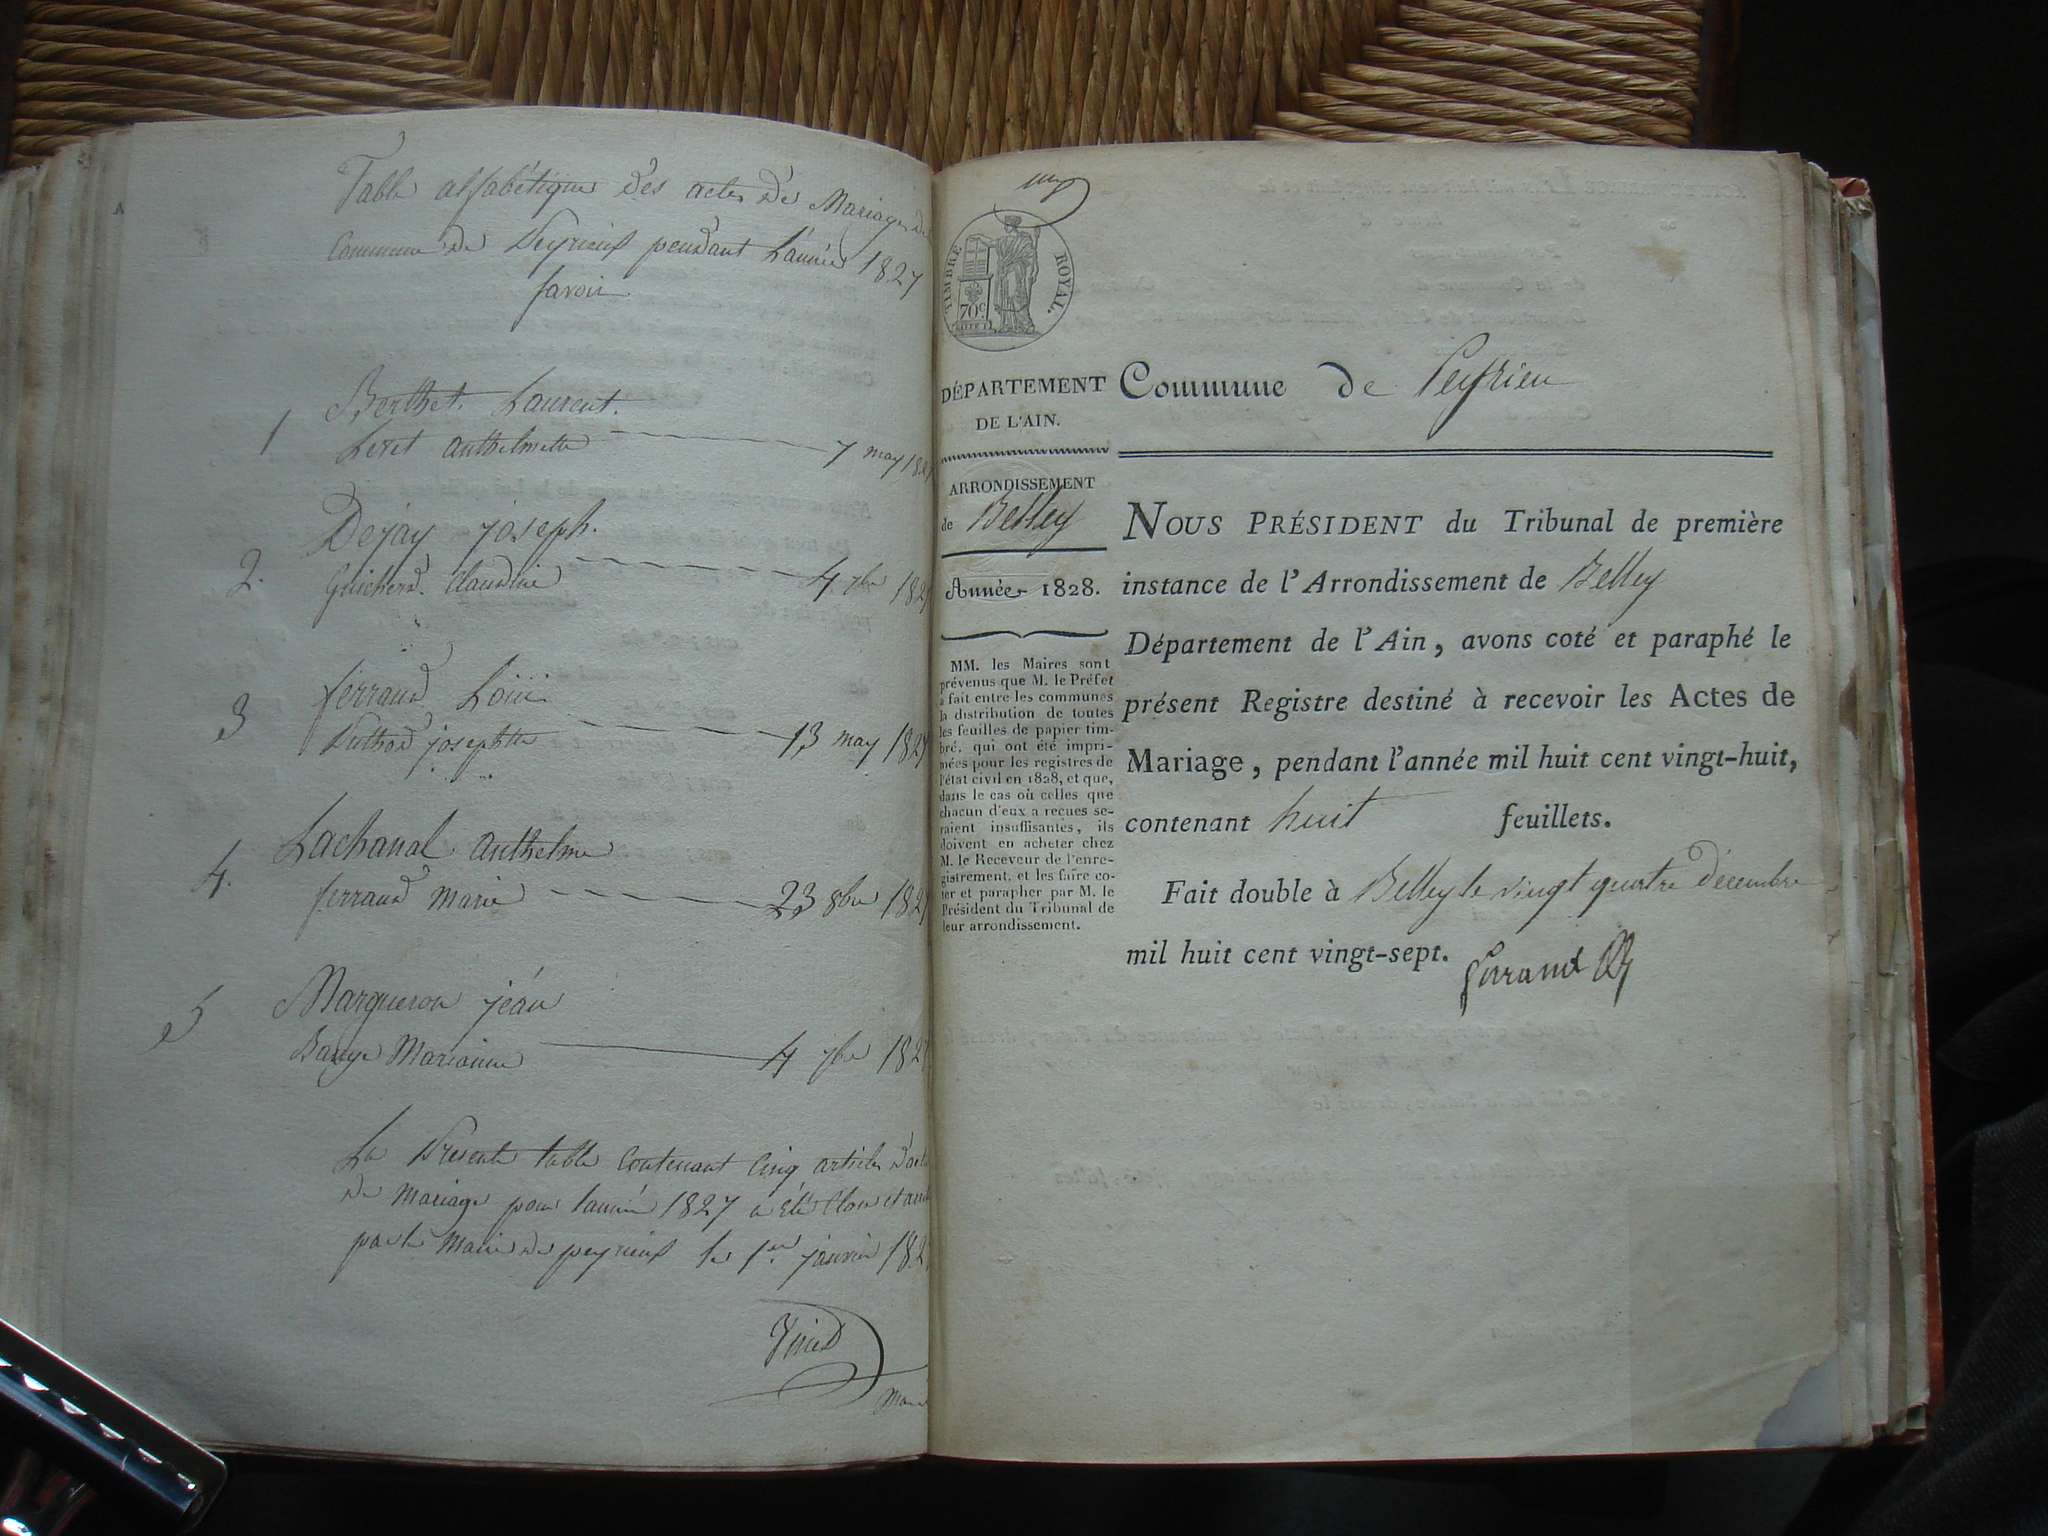 Table alfabétique des actes de Mariage de
Commune de Peyrieux pendant l'année 1827
Savoir
1 Berthet Laurent.
Leret anthelmette 7 may 1827
2. Dejay joseph.
Guicherd Claudine 4 7bre 1827
3 ferrand Loüis
Puthod josephte 13 may 1827
4. Lachanal anthelme
ferrand marie 23 8bre 1827
5 Margueron jean
Marianne 4 7bre 1827
La Présente table Contenant Cinq articles d'acte
de mariage pour l'année 1827 a été Clou et
par le Maire de peyrieux le 1er janvier 182
maire
TIMBRE ROYAL.
70c.
DÉPARTEMENT
DE L'AIN.
ARRONDISSEMENT
de Belley
Année 1828.
MM. les Maires sont
prévenus que M. le Préfet
a fait entre les communes
la distribution de toutes
les feuilles de papier tim-
bré, qui ont été impri-
mées pour les registres de
l'état civil en 1828, et que,
dans le cas où celles que
chacun d'eux a reçues se-
raient insuffisantes, ils
doivent en acheter chez
M. le Receveur de l'enre-
gistrement, et les faire co-
ter et parapher par M. le
Président du Tribunal de
leur arrondissement.
Commune de Peyrieu
NOUS PRÉSIDENT du Tribunal de première
instance de l'Arrondissement de Belley
Département de l'Ain, avons coté et paraphé le
présent Registre destiné à recevoir les Actes de
Mariage, pendant l'année mil huit cent vingt-huit,
contenant huit feuillets.
Fait double à Belley le vingt quatre décembre
mil huit cent vingt-sept.